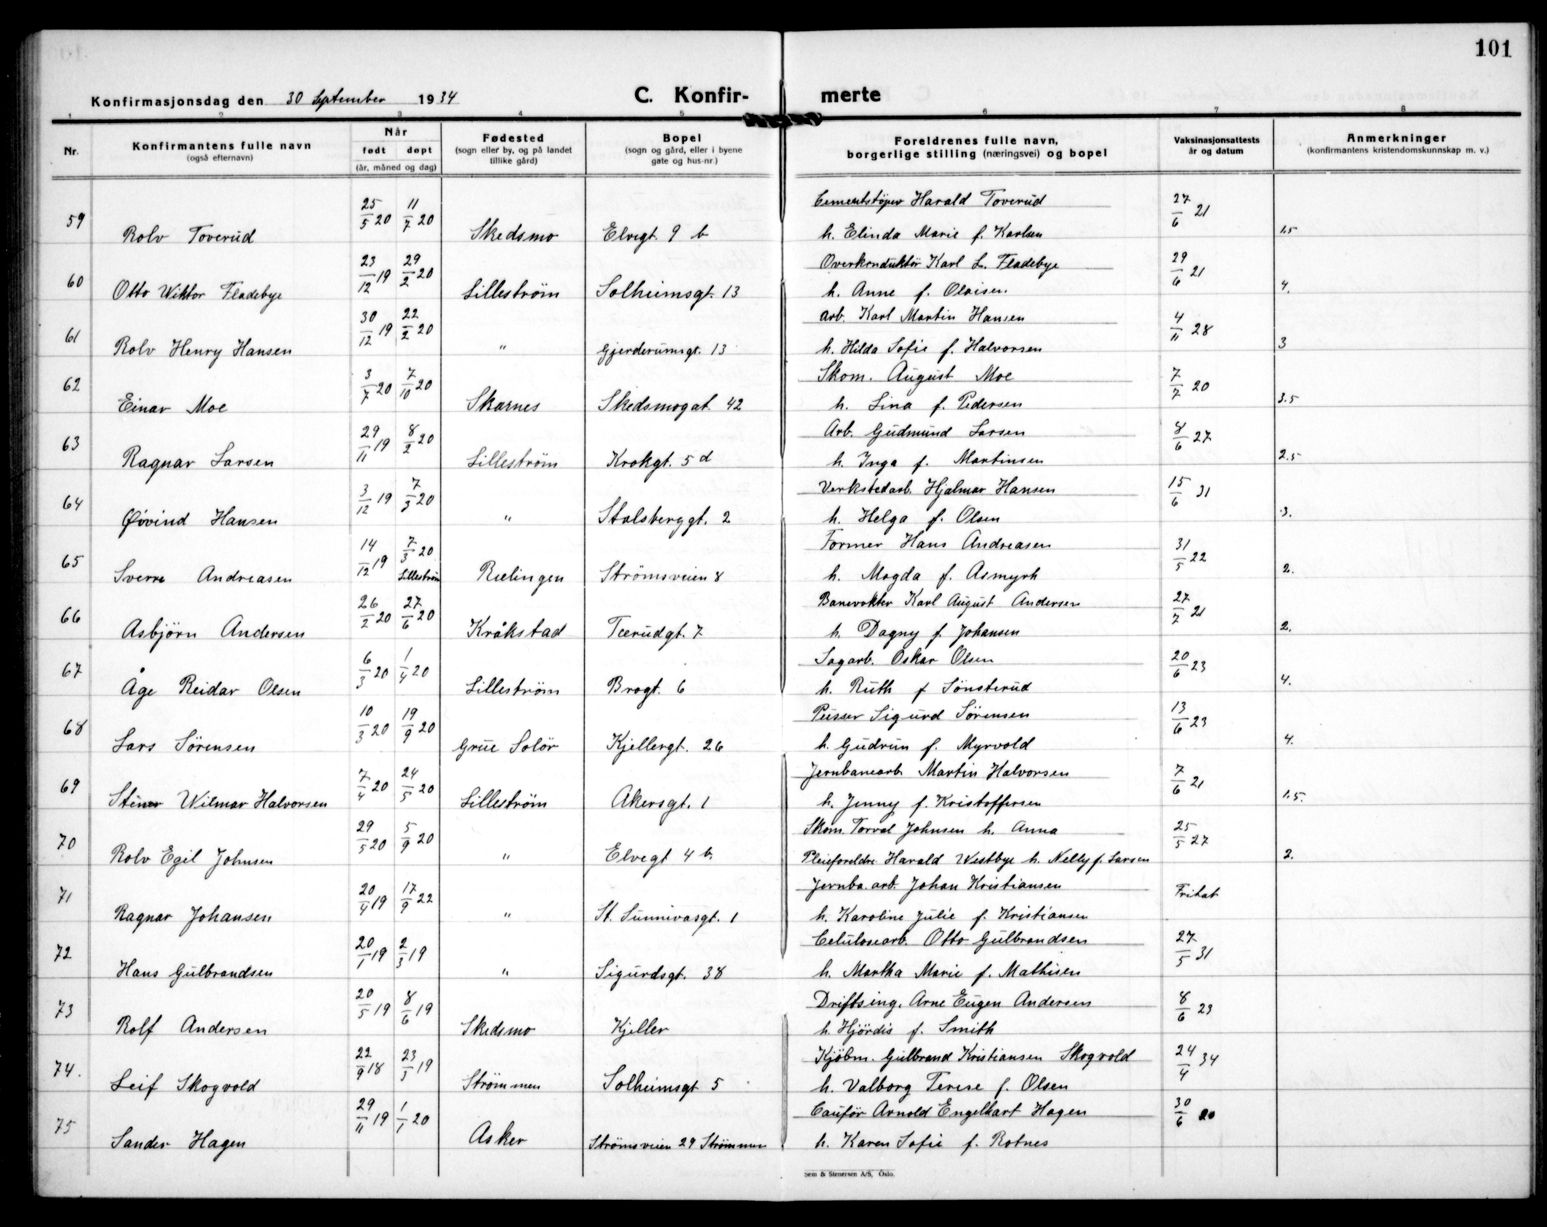 101
Konfirmasjonsdag den 30 September 1934 C. Konfir- merte
1 2 3 4 5 6 7 8
Nr. Konfirmantens fulle navn (også efternavn) Når født døpt (år, måned og dag) Fødested (sogn eller by, og på landet tillike gård) Bopel (sogn og gård, eller i byene gate og hus-nr.) Foreldrenes fulle navn, borgerlige stilling (næringsvei) og bopel Vaksinasjonsattests år og datum Anmerkninger (konfirmantens kristendomskunnskap m. v.)
59 Rolv Toverud 25/5 20 11/7 20 Skedsmo Elvegt 9 b Cementstøper Harald Toverud 27/6 21
h. Elinda Marie f. Karlsen 1.5
60 Otto Wiktor Fladebye 23/12 19 29/2 20 Lilleström Solheimsgt. 13 Overkonduktör Karl L. Fladebye 29/6 21
h. Anne f. Olaisen 4.
61 Rolv Henry Hansen 30/12 19 22/2 20 " Gjerderumsgt. 13 Arb. Karl Martin Hansen 4/11 28
h. Hilda Sofie f. Halvorsen 3
62 Einar Moe 3/7 20 7/10 20 Skarnes Skedsmogat. 42 Skom. August Moe 7/7 20
h. Lina f. Pedersen 3.5
63 Ragnar Larsen 29/11 19 8/2 20 Lilleström Krokgt. 5 d Arb. Gudmund Larsen 8/6 27
h. Inga f. Martinsen 2.5
64 Øivind Hansen 3/12 19 7/3 20 " Stalsberggt. 2 Verkstedarb. Hjalmar Hansen 15/6 31
h. Helga f. Olsen 3.
65 Sverre Andreasen 14/12 19 7/3 20 Lilleström Rælingen Strömsveien 8 Former Hans Andreasen 31/5 22
h. Magda f. Asmyrh 2.
66 Asbjörn Andersen 26/2 20 27/6 20 Kråkstad Tærudgt. 7 Banevokter Karl August Andersen 27/7 21
h. Dagny f. Johansen 2.
67 Åge Reidar Olsen 6/3 20 1/4 20 Lilleström Bragt. 6 Sagarb. Oskar Olsen 20/6 23
h. Ruth f Sönsterud 4.
68 Lars Sörensen 10/3 20 19/9 20 Grue Solör Kjellergt. 26 Pusser Sigurd Sörensen 13/6 23
h. Gudrun f. Myrvold 4.
69 Steinar Wilmar Halvorsen 7/4 20 24/5 20 Lilleström Akersgt. 1 Jernbanearb. Martin Halvorsen 7/6 21
h. Jenny f. Kristoffersen 1.5.
70 Rolv Egil Johnsen 29/5 20 5/9 20 " Elvegt 4 b. Skom. Torval Johnsen h. Anna 25/5 27
Pleieforeldre Harald Westbye h. Nelly f. Larsen 2.
71 Ragnar Johansen 20/4 19 17/9 22 " St. Sunnivasgt. 1 Jernba.arb. Johan Kristiansen Fritat
h. Karoline Julie f. Kristiansen
72 Hans Gulbrandsen 20/1 19 2/3 19 " Sigurdsgt. 38 Celulosearb. Otto Gulbrandsen 27/5 31
h. Martha Marie f. Mathisen
73 Rolf Andersen 20/5 19 8/6 19 Skedsmo Kjeller Driftsing. Arne Eugen Andersen 8/6 23
h. Hjördis f. Smith
74. Leif Skogvold 22/9 18 23/3 19 Strömmen Solheimsgt 5 Kjöbm. Gulbrand Kristiansen Skogvold 24/4 34
h. Valborg Terese f. Olsen
75 Sander Hagen 29/11 19 1/1 20 Asker Strömsveien 29 Strömmen Caufør Arnold Engelhart Hagen 30/6 20
h. Karen Sofie f. Rotnes
Sem & Stenersen A/S, Oslo.